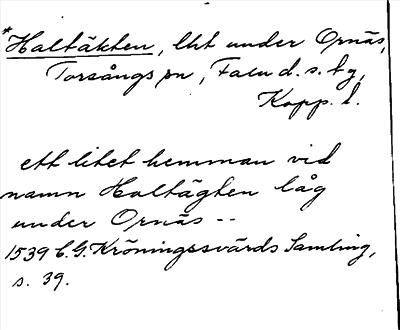 *Haltäkten, lht under Ornäs,
Torsångs sn, Falu d.s. tg,
Kopp. l.
ett litet hemman vid
namn Haltägten låg
under Ornäs --
1539 C.G. Kröningssvärds Samling,
s. 39.